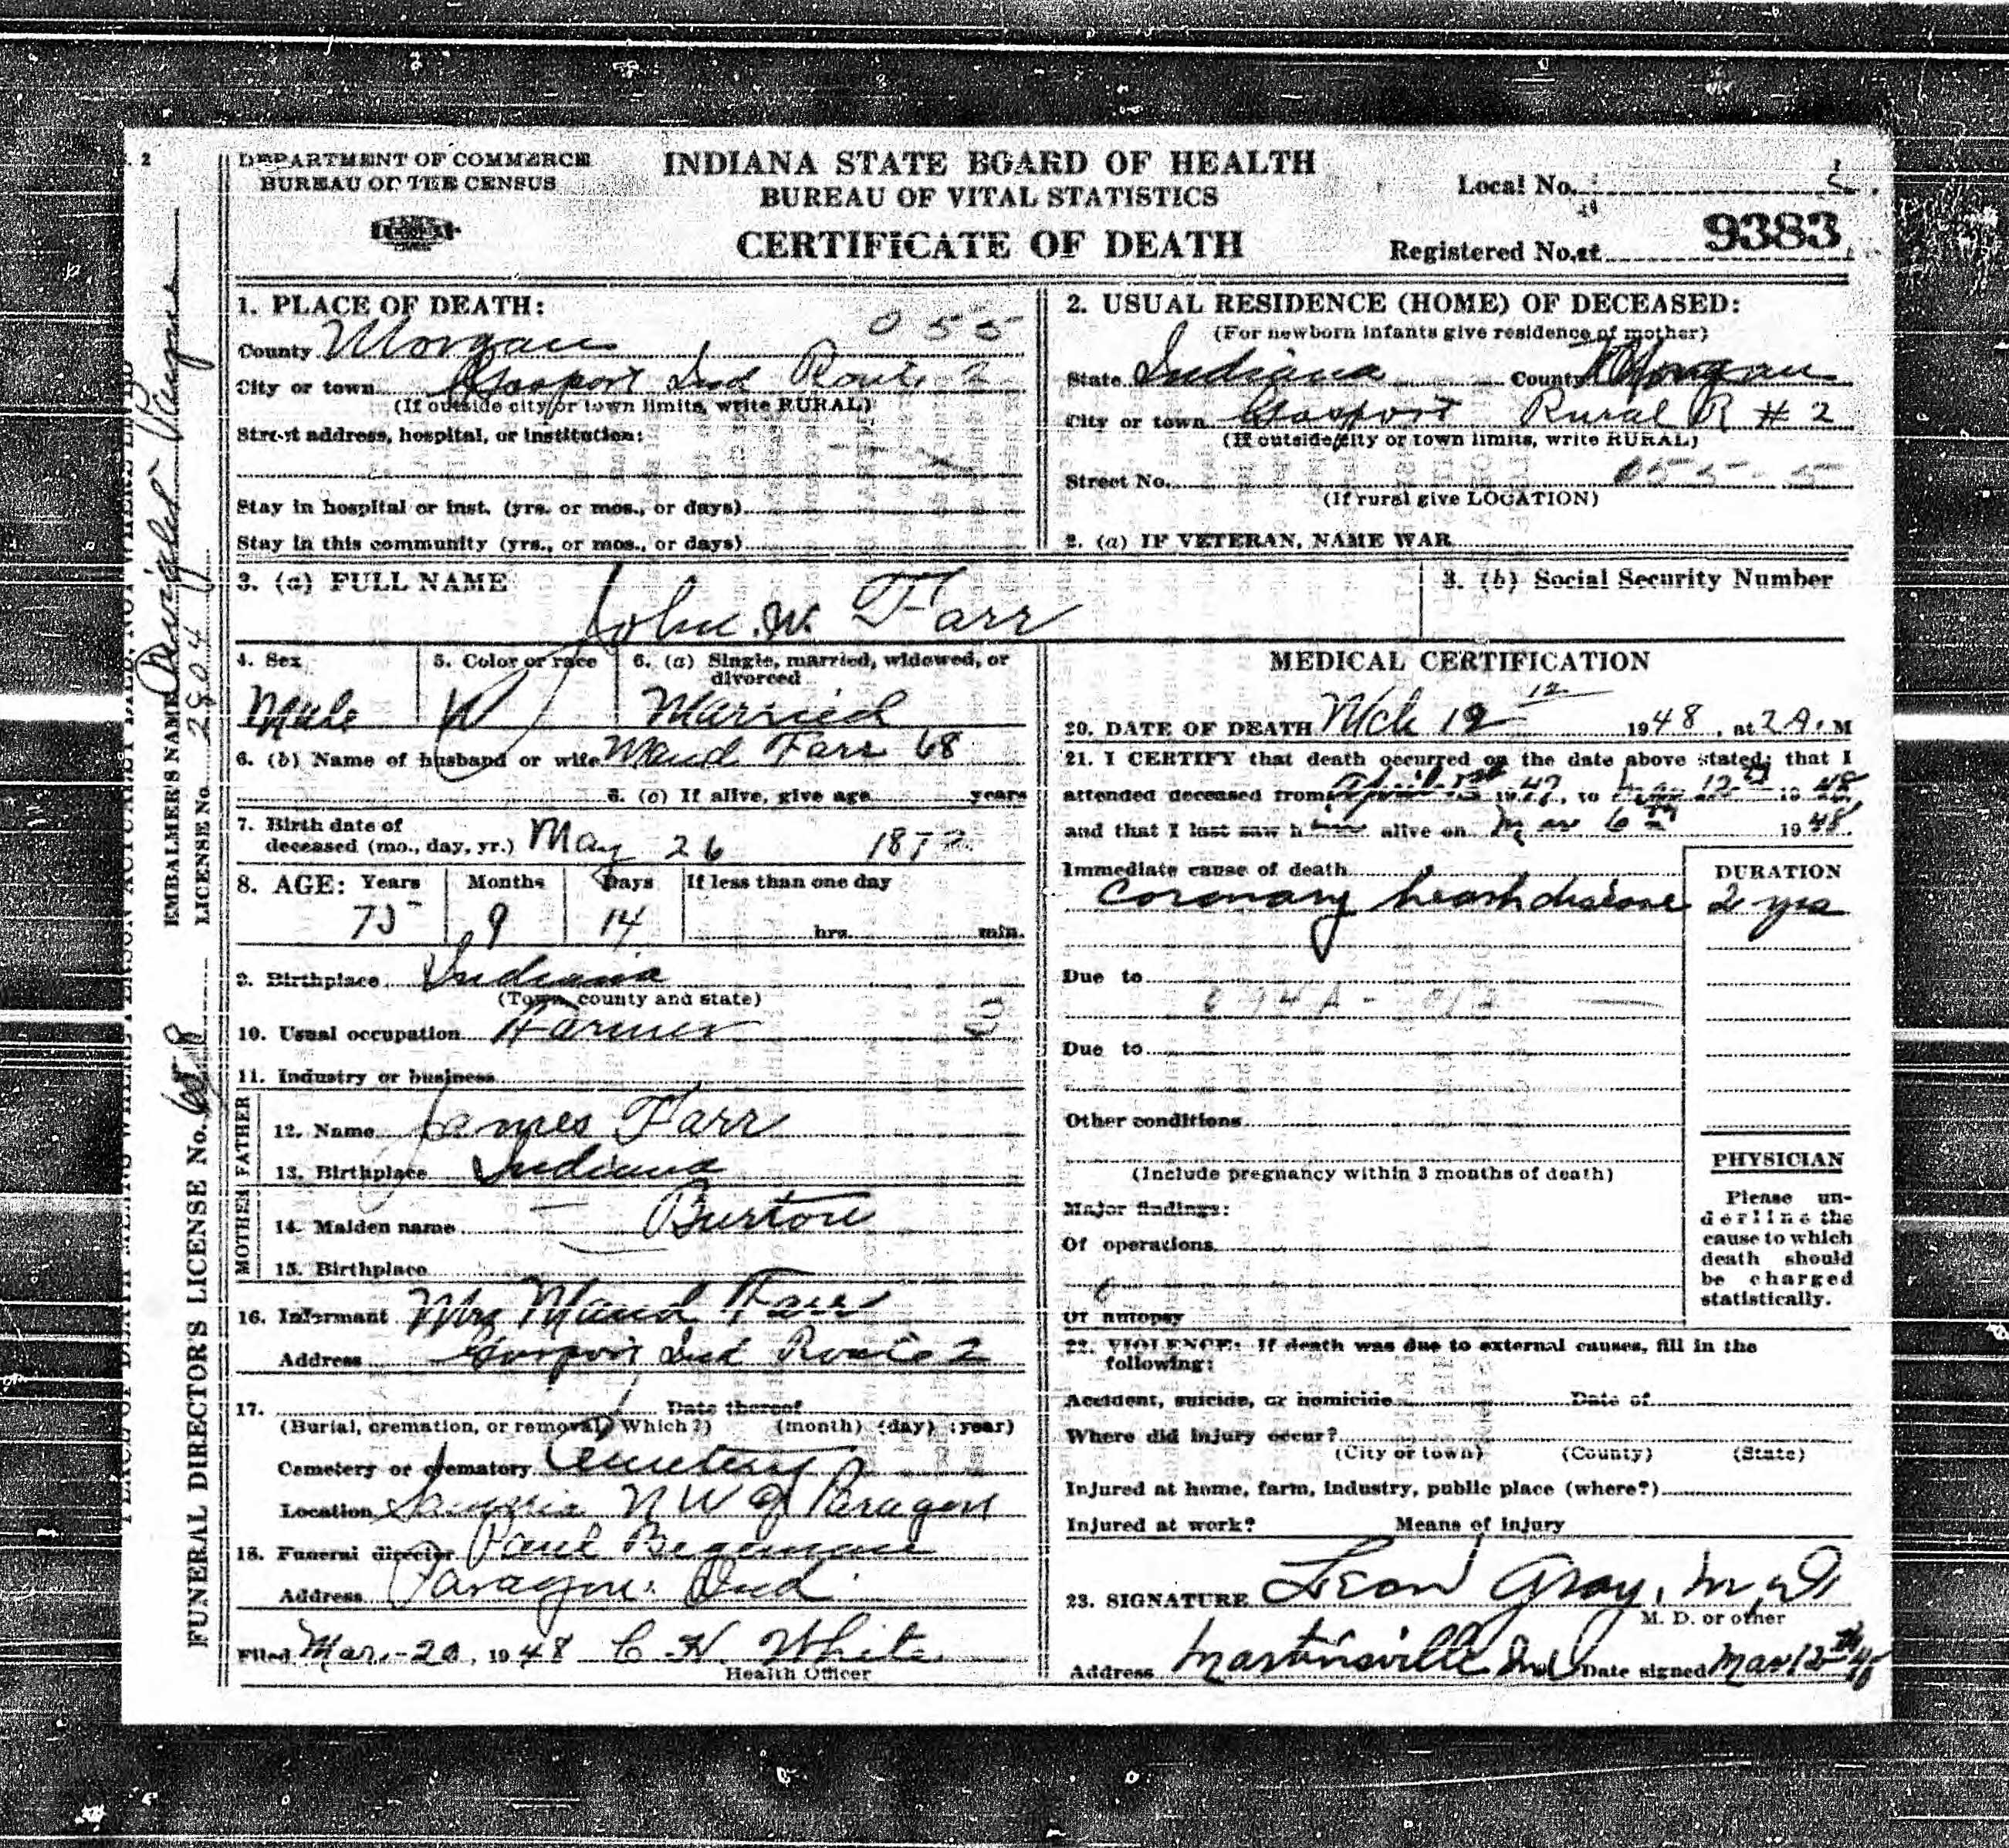 . 2
DEPARTMENT OF COMMERCE
BUREAU OF THE CENSUS
INDIANA STATE BOARD OF HEALTH
BUREAU OF VITAL STATISTICS
CERTIFICATE OF DEATH
Local No. 5
Registered No. 9383
1. PLACE OF DEATH:
055
County Morgan
City or town Gosport Ind Route 2
(If outside city or town limits, write RURAL)
Street address, hospital, or institution:
Stay in hospital or inst. (yrs. or mos., or days)
Stay in this community (yrs., or mos., or days)
2. USUAL RESIDENCE (HOME) OF DECEASED:
(For newborn infants give residence of mother)
State Indiana County Morgan
City or town Gosport Rural R # 2
(If outside city or town limits, write RURAL)
Street No. 055-5
(If rural give LOCATION)
2. (a) IF VETERAN, NAME WAR
3. (a) FULL NAME John W. Farr
3. (b) Social Security Number
4. Sex Male
5. Color or race W
6. (a) Single, married, widowed, or divorced Married
6. (b) Name of husband or wife Maud Farr 68
6. (c) If alive, give age years
7. Birth date of
deceased (mo., day, yr.) May 26 1872
8. AGE: Years Months Days If less than one day
75 9 14 hrs. min.
9. Birthplace Indiana
(Town, county and state)
10. Usual occupation Farmer
11. Industry or business
FATHER
12. Name James Farr
13. Birthplace Indiana
MOTHER
14. Maiden name — Burton
15. Birthplace
16. Informant Mrs Maud Farr
Address Gosport Ind Route 2
17. Date thereof
(Burial, cremation, or removal, Which?) (month) (day) (year)
Cemetery or crematory Cemetery
Location N W of Paragon
18. Funeral director Paul Begeman
Address Paragon Ind.
Filed Mar.-20, 1948 C. H. White
Health Officer
MEDICAL CERTIFICATION
12
20. DATE OF DEATH Mch 12 1948, at 2 A. M
21. I CERTIFY that death occurred on the date above stated; that I
attended deceased from April 1st 1947, to Mar 12th 1948,
and that I last saw h alive on Mar 6th 1948.
Immediate cause of death
Coronary heart disease
DURATION
2 yrs
Due to
Due to
Other conditions
(Include pregnancy within 3 months of death)
Major findings:
Of operations
Of autopsy
PHYSICIAN
Please un-
derline the
cause to which
death should
be charged
statistically.
22. VIOLENCE: If death was due to external causes, fill in the
following:
Accident, suicide, or homicide Date of
Where did injury occur?
(City or town) (County) (State)
Injured at home, farm, industry, public place (where?)
Injured at work? Means of injury
23. SIGNATURE Leon Gray, M.D.
M. D. or other
Address Martinsville Ind Date signed Mar 12th 48
EMBALMER'S NAME Dwight Payne
LICENSE No. 2804
FUNERAL DIRECTOR'S LICENSE No.